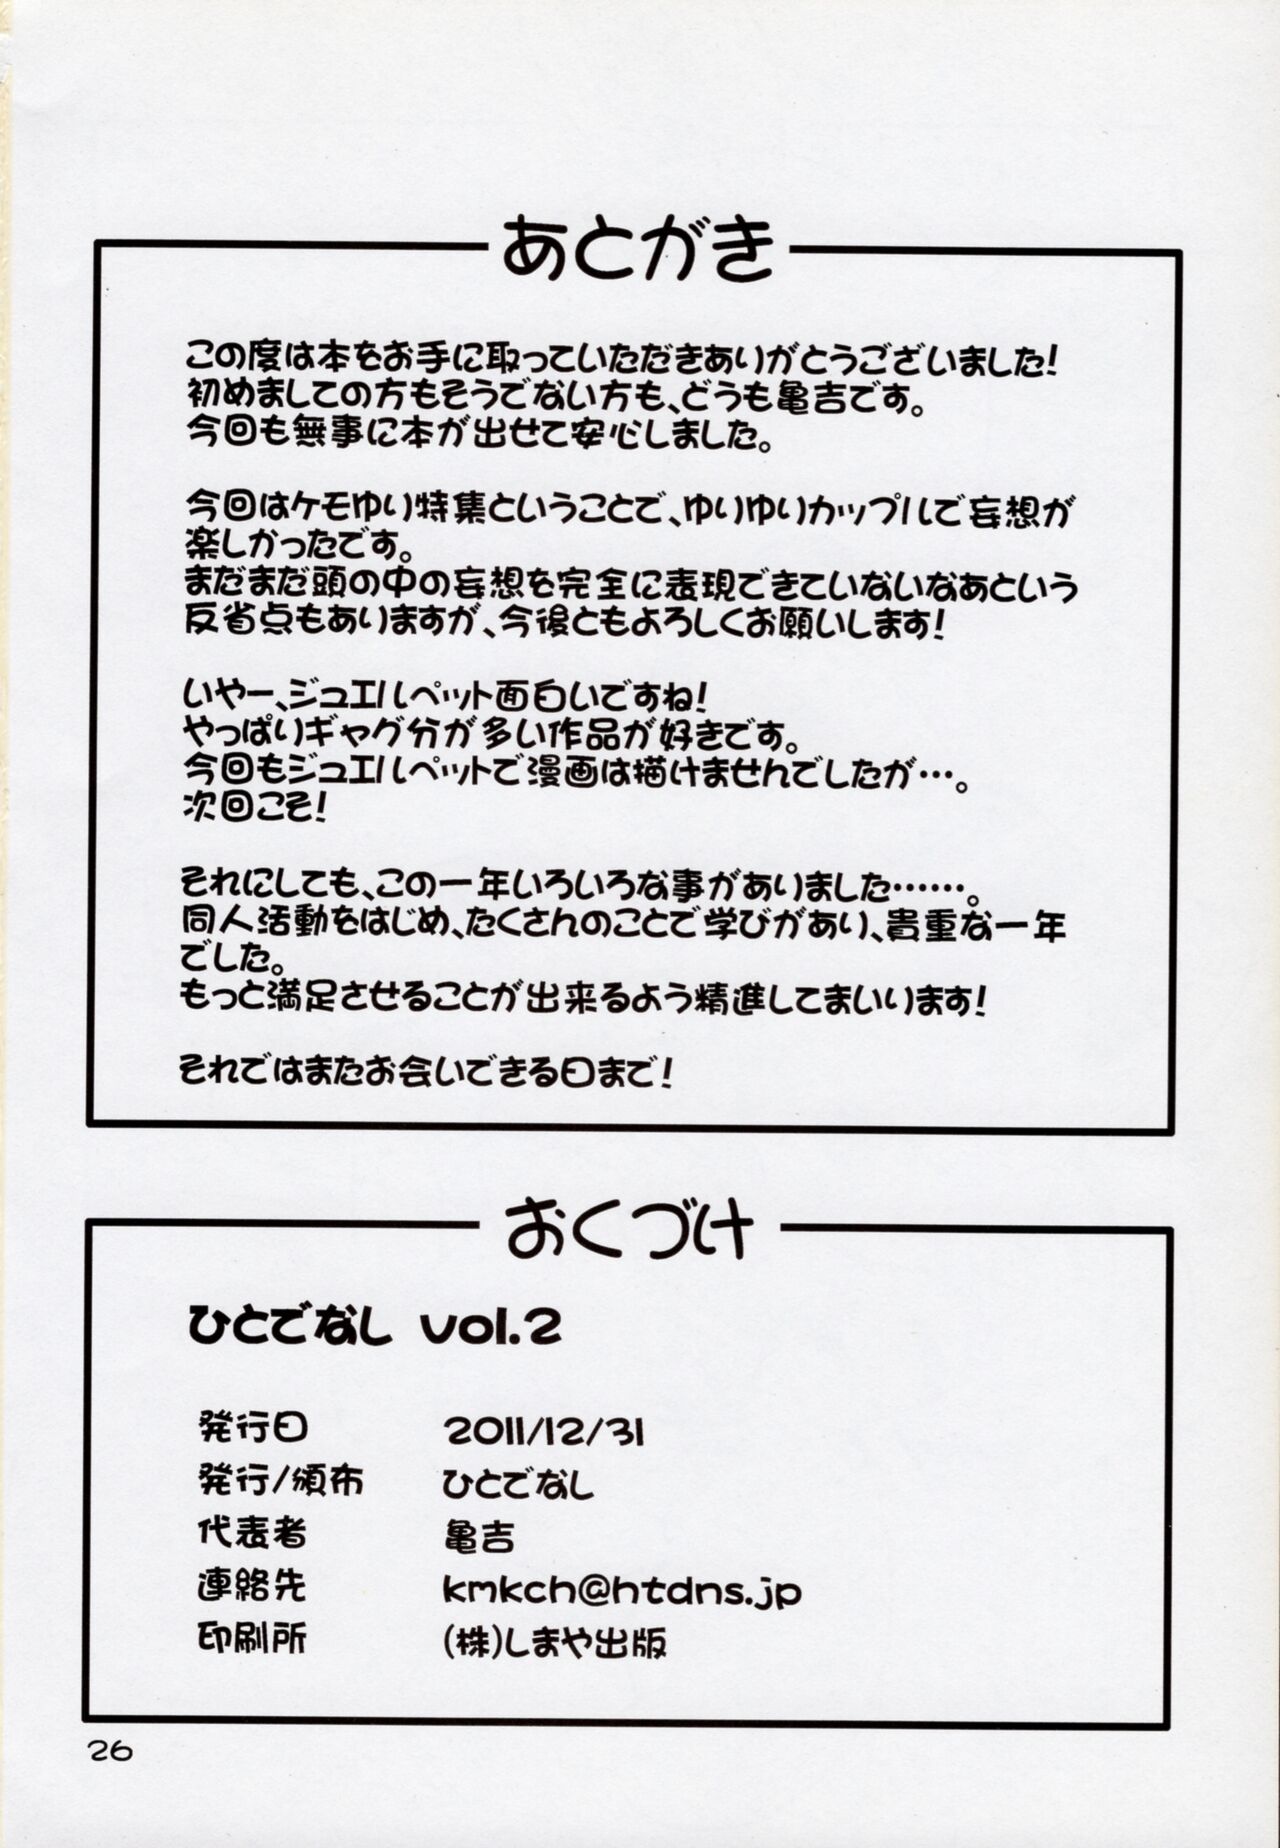 あとがき
この度は本をお手に取っていただきありがとうございました！
初めましての方もそうでない方も、どうも亀吉です。
今回も無事に本が出せて安心しました。
今回はケモゆり特集ということで、ゆりゆりカップルで妄想が
楽しかったです。
まだまだ頭の中の妄想を完全に表現できていないなあという
反省点もありますが、今後ともよろしくお願いします！
いやー、ジュエルペット面白いですね！
やっぱりギャグ分が多い作品が好きです。
今回もジュエルペットで漫画は描けませんでしたが…。
次回こそ！
それにしても、この一年いろいろな事がありました……。
同人活動をはじめ、たくさんのことで学びがあり、貴重な一年
でした。
もっと満足させることが出来るよう精進してまいります！
それではまたお会いできる日まで！
おくづけ
ひとでなし vol.2
発行日 2011/12/31
発行/頒布 ひとでなし
代表者 亀吉
連絡先 kmkch@htdns.jp
印刷所 (株)しまや出版
26